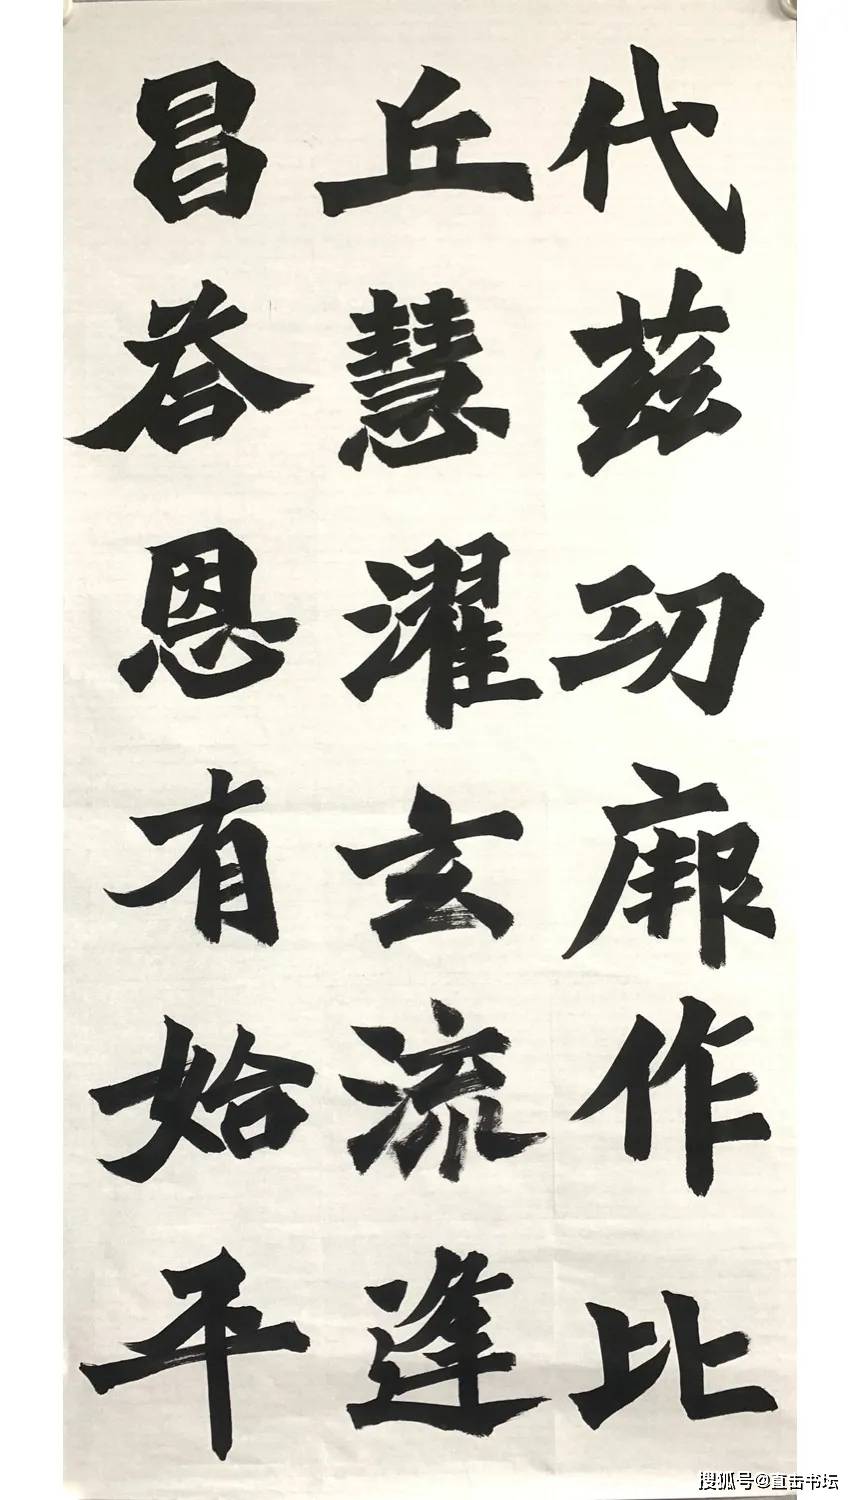 代茲功厥作比
丘慧濯玄流逢
昌荅恩有始平
搜狐号@直击书坛